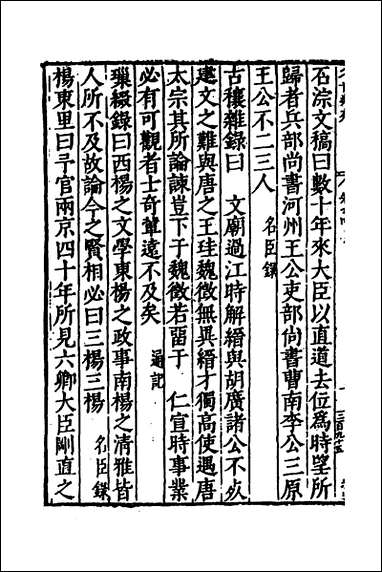 石淙文稿曰數十年來大臣以直道去位爲時望所
歸者兵部尚書河州王公吏部尚書曹南李公三原
王公不二三人 名臣錄
古穰雜錄曰 文廟過江時解縉與胡廣諸公不㱥
建文之難與唐之王珪魏徵無異縉才獨高使遇唐
太宗其所論諫豈下于魏徵若畱于 仁宣時事業
必有可觀者士奇軰遠不及矣 通記
瑣綴錄曰西楊之文學東楊之政事南楊之清雅皆
人所不及故論今之賢相必曰三楊三楊 名臣錄
楊東里曰予官兩京四十年所見六卿大臣剛直之